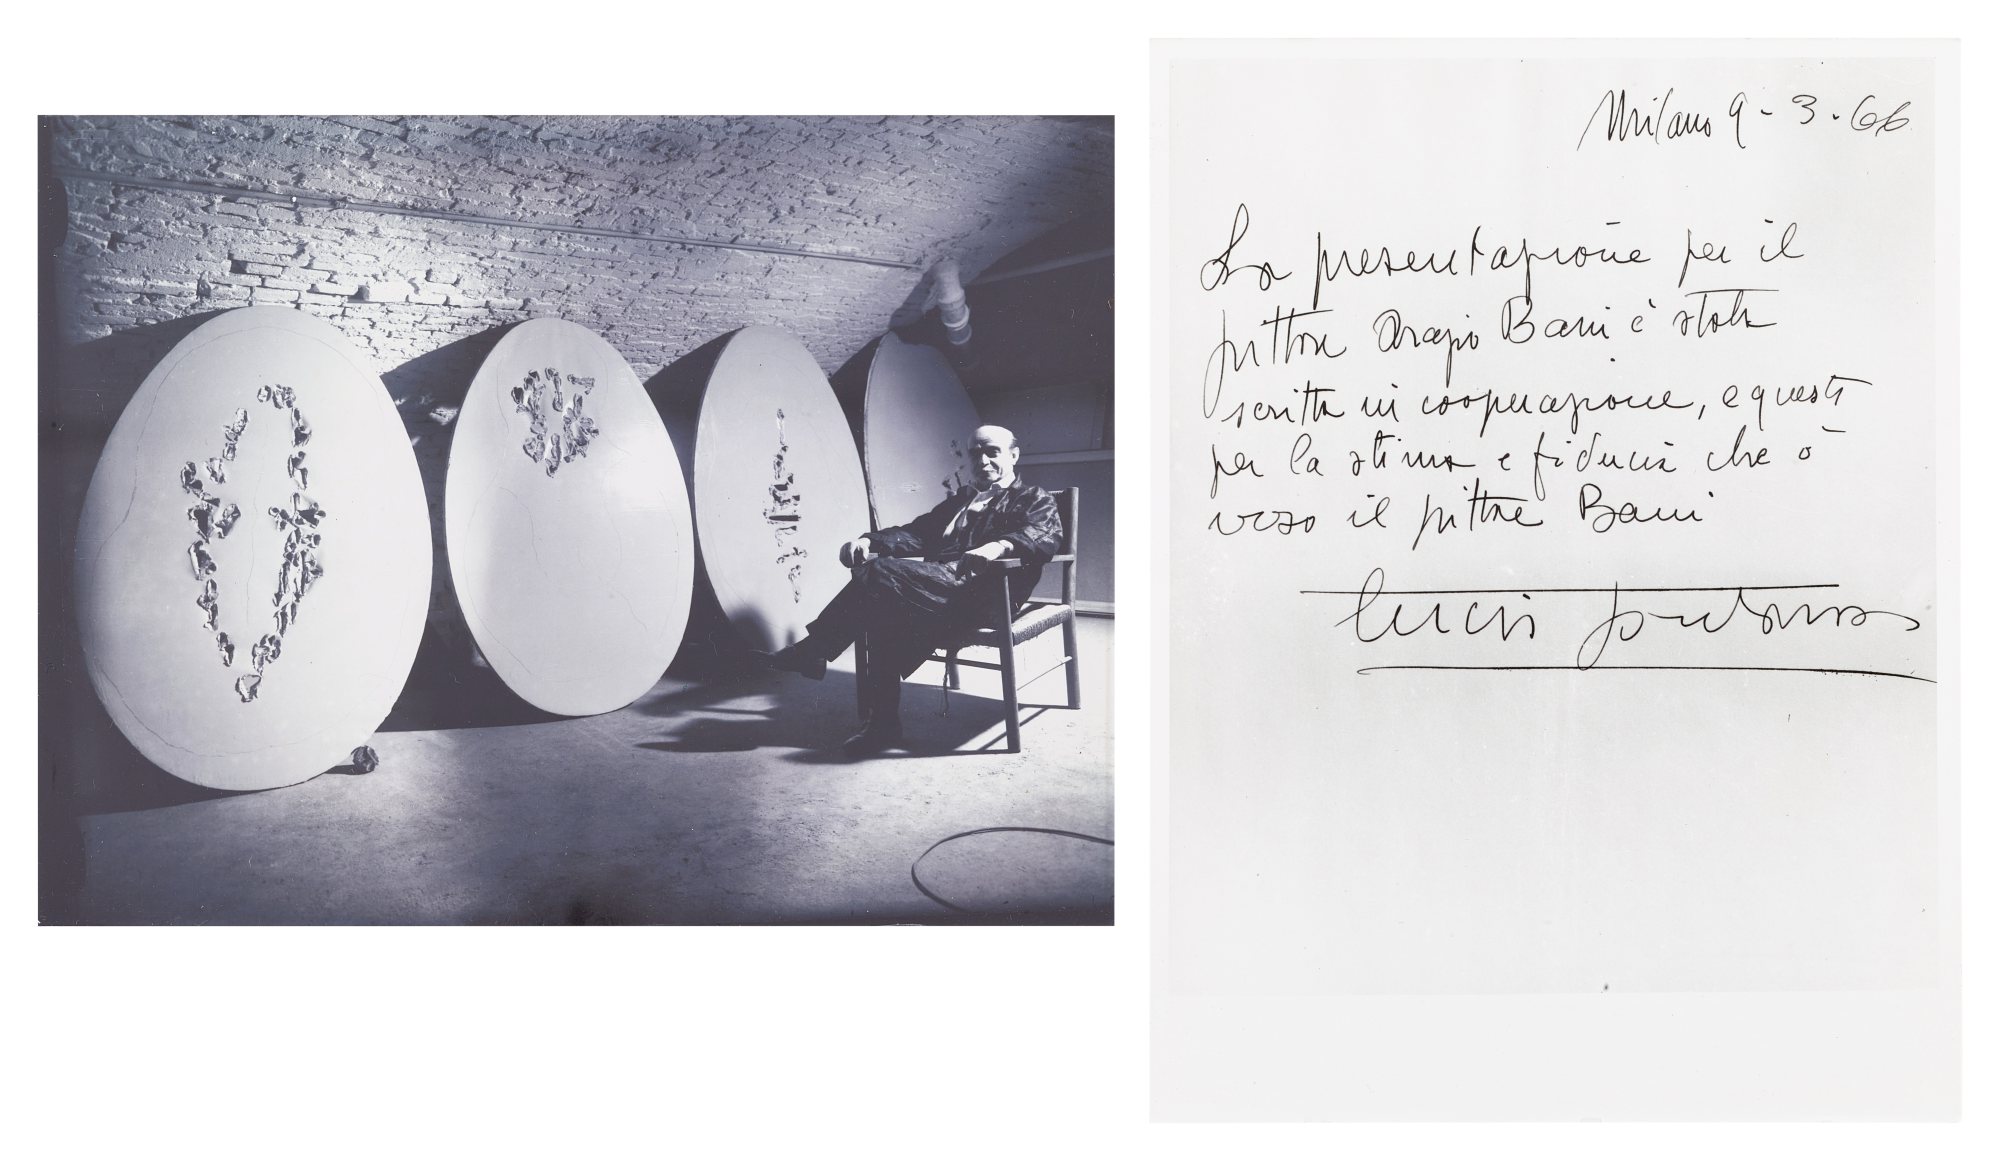 Milano 9-3.66
La presentazione per il
pittore Orazio Bani è stata
scritta in cooperazione, e questo
per la stima e fiducia che ò
verso il pittore Bani
Lucio Fontana